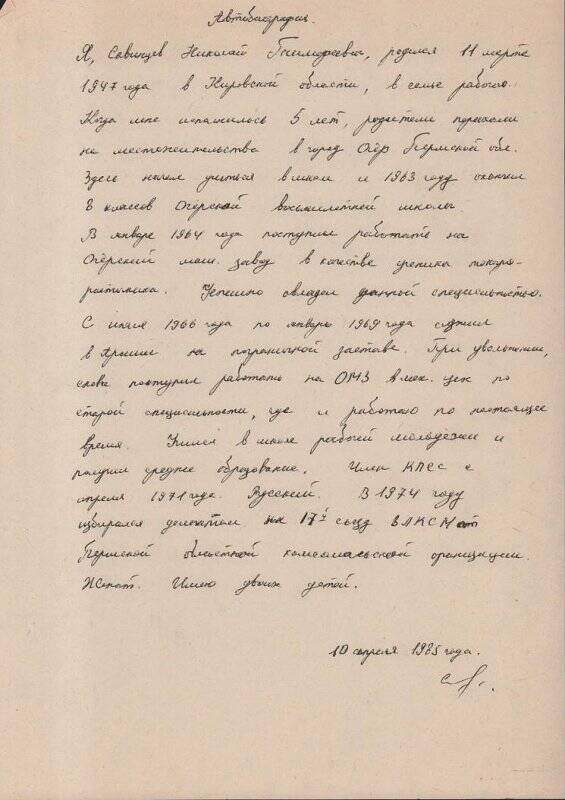 Автобиография.
Я, Савинцев Николай Тимофеевич, родился 11 марта
1947 года в Кировской области, в семье рабочего.
Когда мне исполнилось 5 лет, родители переехали
на местожительства в город Очёр Пермской обл.
Здесь начал учиться в школе и 1963 году окончил
8 классов Очёрской восьмилетней школы
В январе 1964 года поступил работать на
Очёрский маш. завод в качестве ученика токаря-
расточника. Успешно овладел данной специальностью.
С июля 1966 года по январь 1969 года служил
в Армии на пограничной заставе. При увольнении,
снова поступил работать на ОМЗ в мех. цех по
старой специальности, где и работаю по настоящее
время. Учился в школе рабочей молодёжи и
получил среднее образование. Член КПСС с
апреля 1971 года. Русский. В 1974 году
избирался делегатом на 17й съезд ВЛКСМ от
Пермской областной комсомольской организации.
Женат. Имею двоих детей.
10 апреля 1985 года.